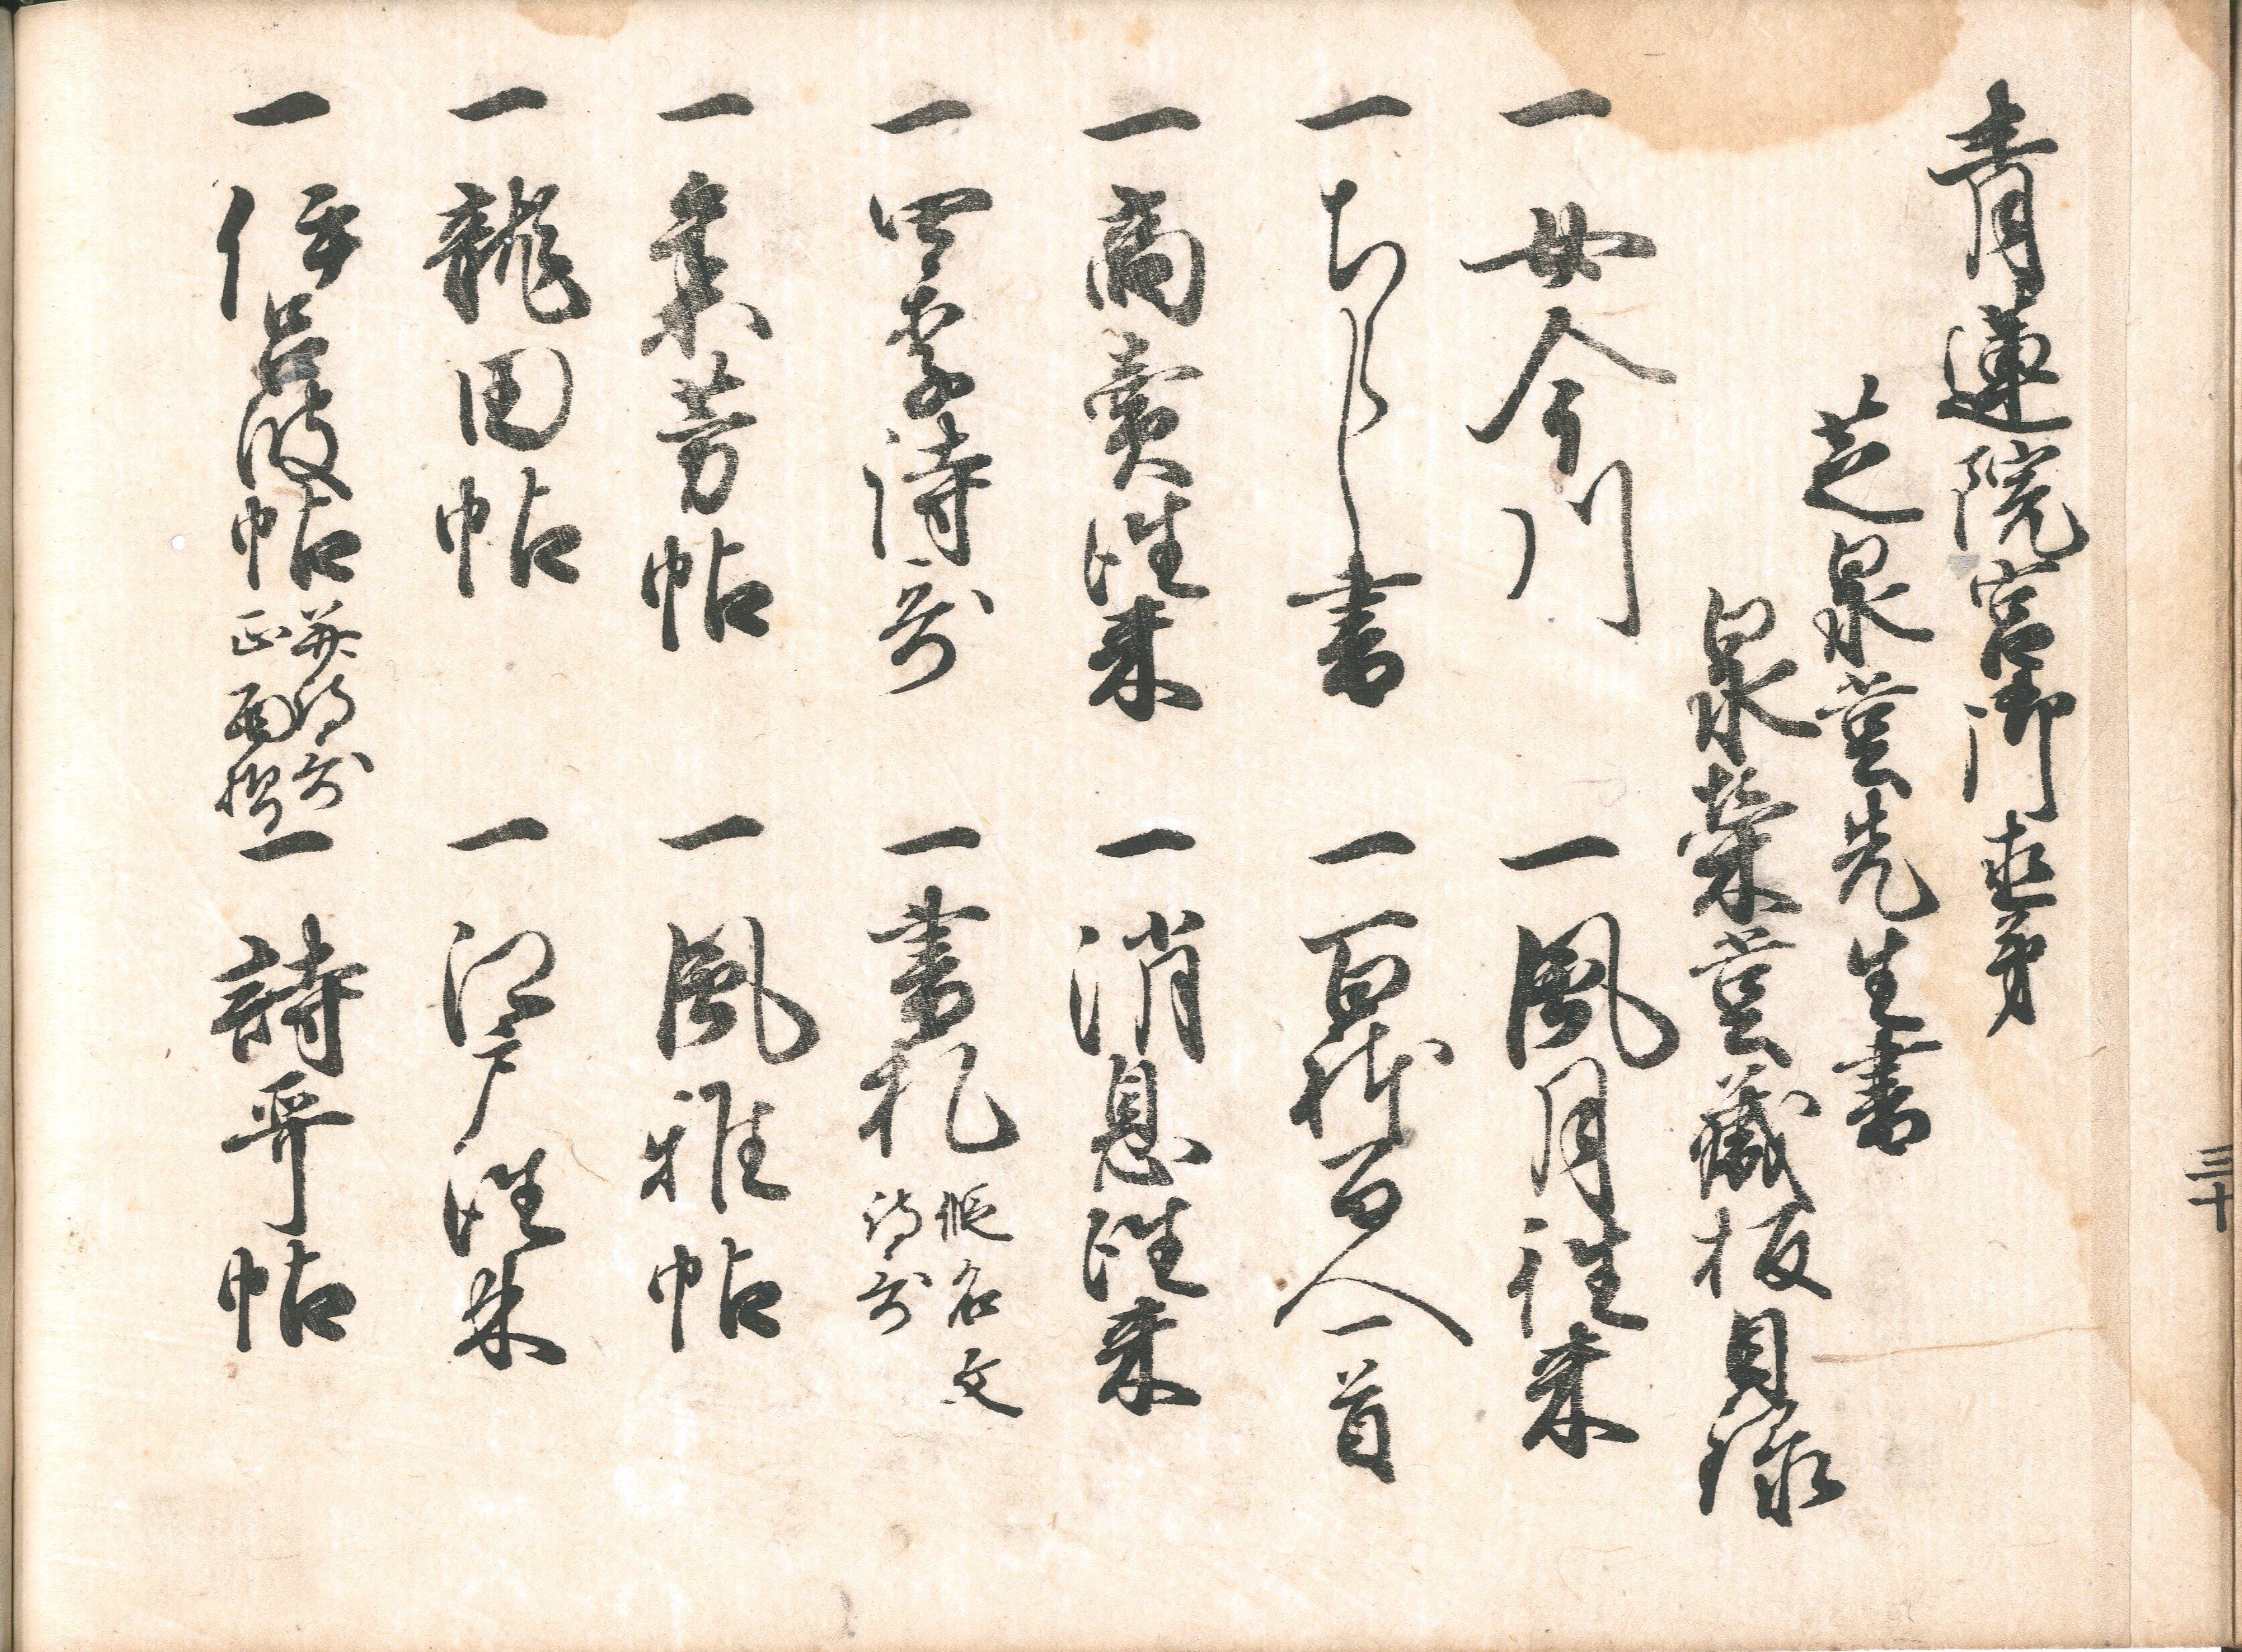 青蓮院宮御直弟
芝泉堂先生書
泉榮堂藏板目録
一女今川
一風月往来
一ちらし書
一百錦百人一首
一商賣往来
一消息往来
一四季詩哥
一書札
假名文
詩哥
一集芳帖
一風雅帖
一龍田帖
一江戸往来
一伊呂波帖
并詩哥
正面摺
一詩哥帖
三十